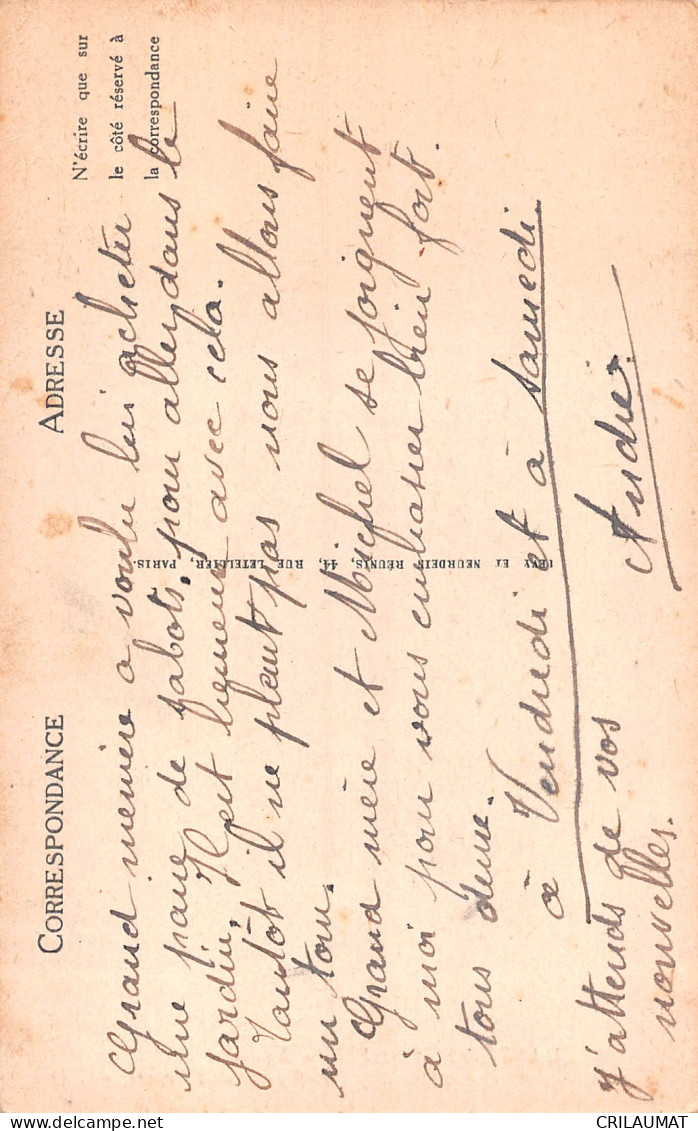 CORRESPONDANCE
ADRESSE
N'écrire que sur
le côté réservé à
la correspondance
Grand memère a voulu lui acheter
une paire de sabots, pour aller dans le
jardin. Il est heureux avec cela.
Tantôt il ne pleut pas nous allons faire
un tour.
Grand mère et Michel se joignent
à moi pour vous embrasser bien fort.
tous deux.
à Vendredi et à Samedi.
j'attends de vos
nouvelles.
André.
LÉVY ET NEURDEIN RÉUNIS, 44, RUE LETELLIER, PARIS.
CRILAUMAT